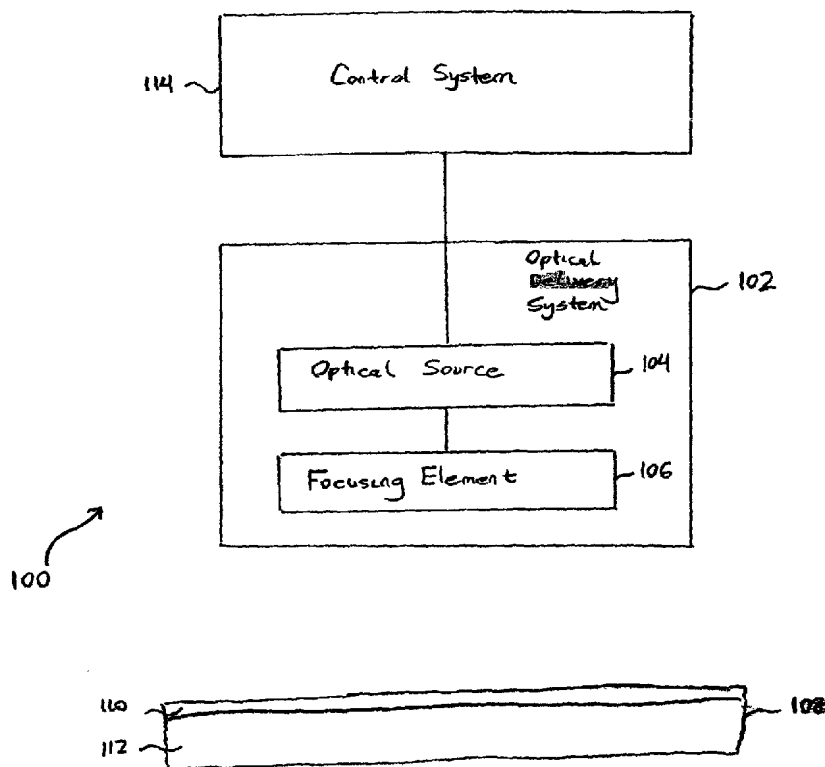 114
Control System
Optical
Delivery
System
102
Optical Source
104
Focusing Element
106
100
110
108
112